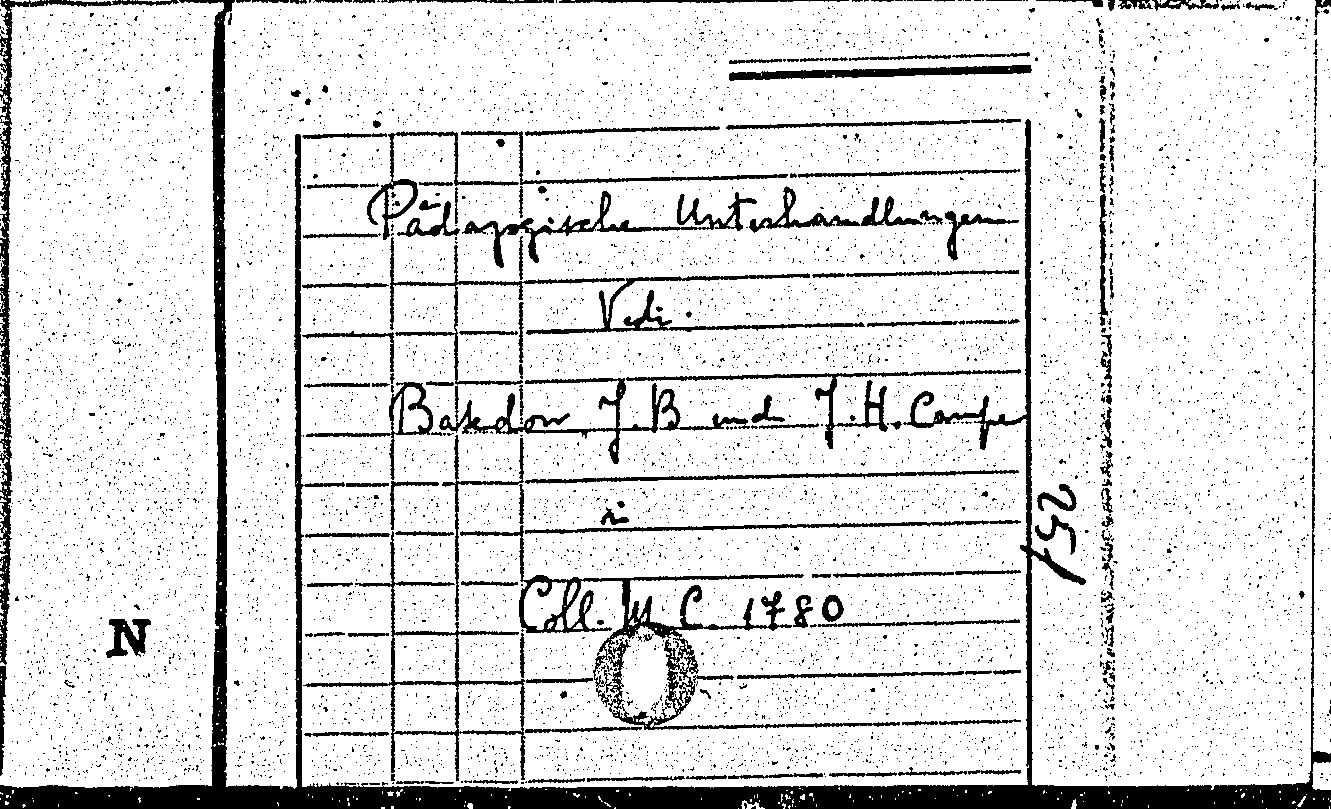 Pädagogische Unterhandlungen
Vedi.
Basedow J.B und J.H. Campe
Coll. M C. 1780
251
N